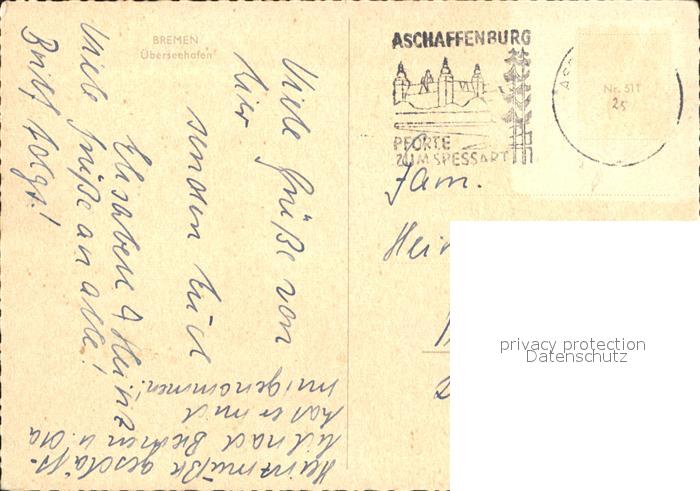 BREMEN
Überseehafen
ASCHAFFENBURG
PFORTE
ZUM SPESSART
Nr. 511
25
Viele Grüße von
hier
senden Euch
Elisabeth & Heinz
Viele Grüße an alle!
Brief folgt!
Heinz mußte geschäft-
lich nach Bremen u. da
hat er mich
mitgenommen!
Fam.
privacy protection
Datenschutz